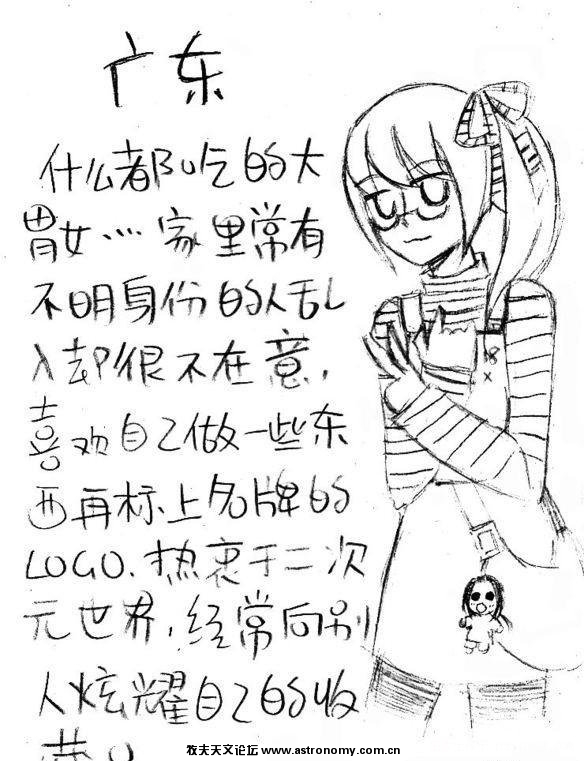 广东
什么都吃的大
胃女……家里常有
不明身份的人乱
入却很不在意,
喜欢自己做一些东
西再标上名牌的
LOGO.热衷于二次
元世界,经常向别
人炫耀自己的收
藏。
牧夫天文论坛 www.astronomy.com.cn